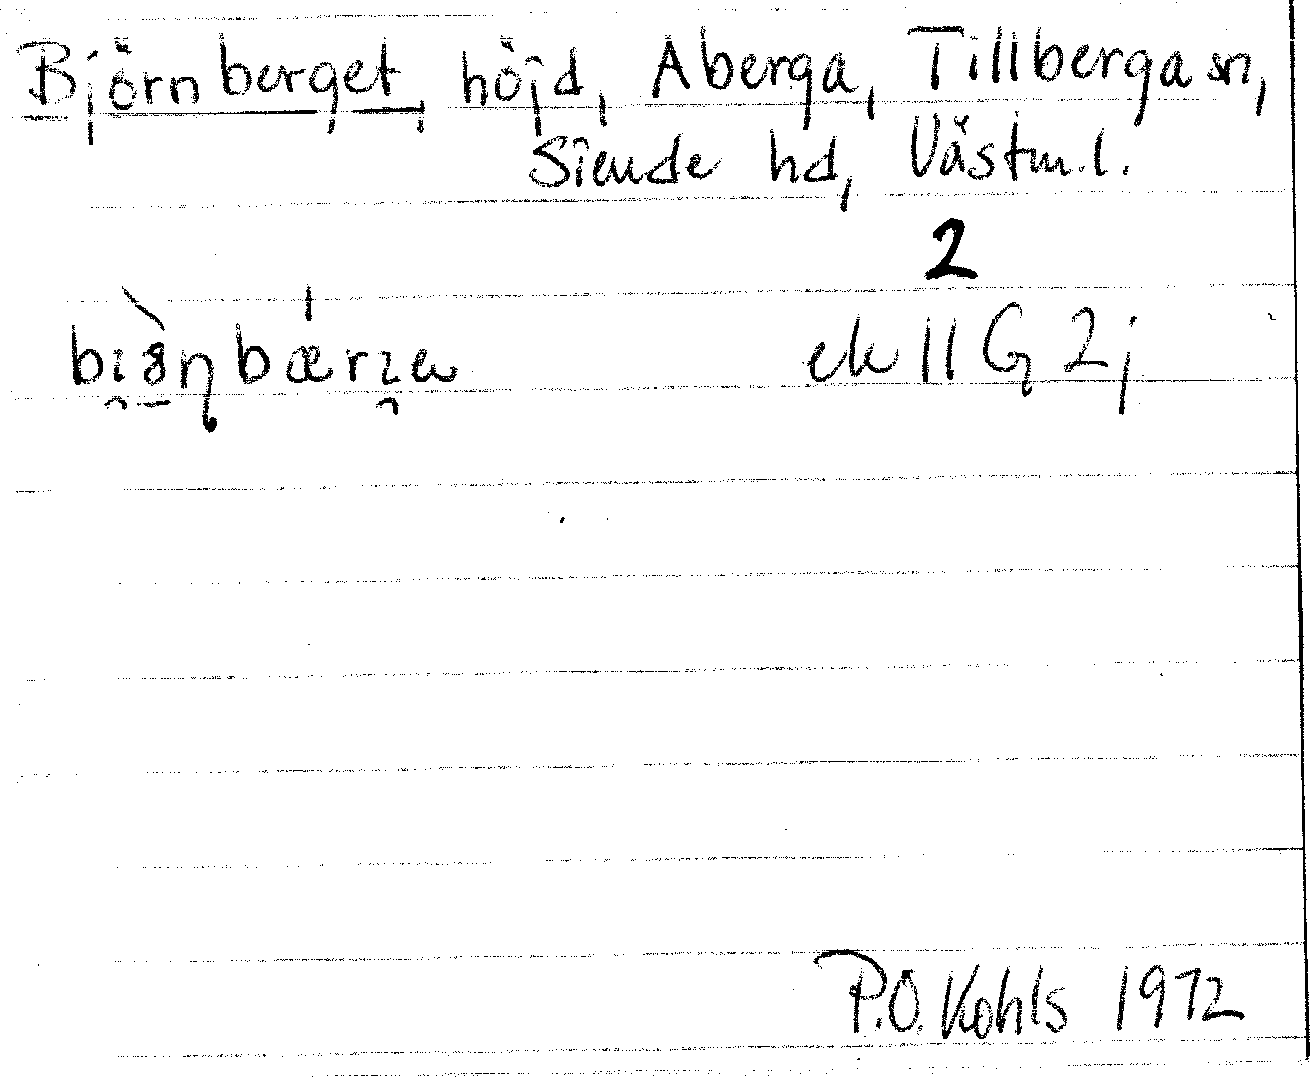 Björnberget, höjd, Åberga, Tillberga sn,
Siende hd, Västm.l.
2
ek 11 G 2j
P.O. Kohls 1972